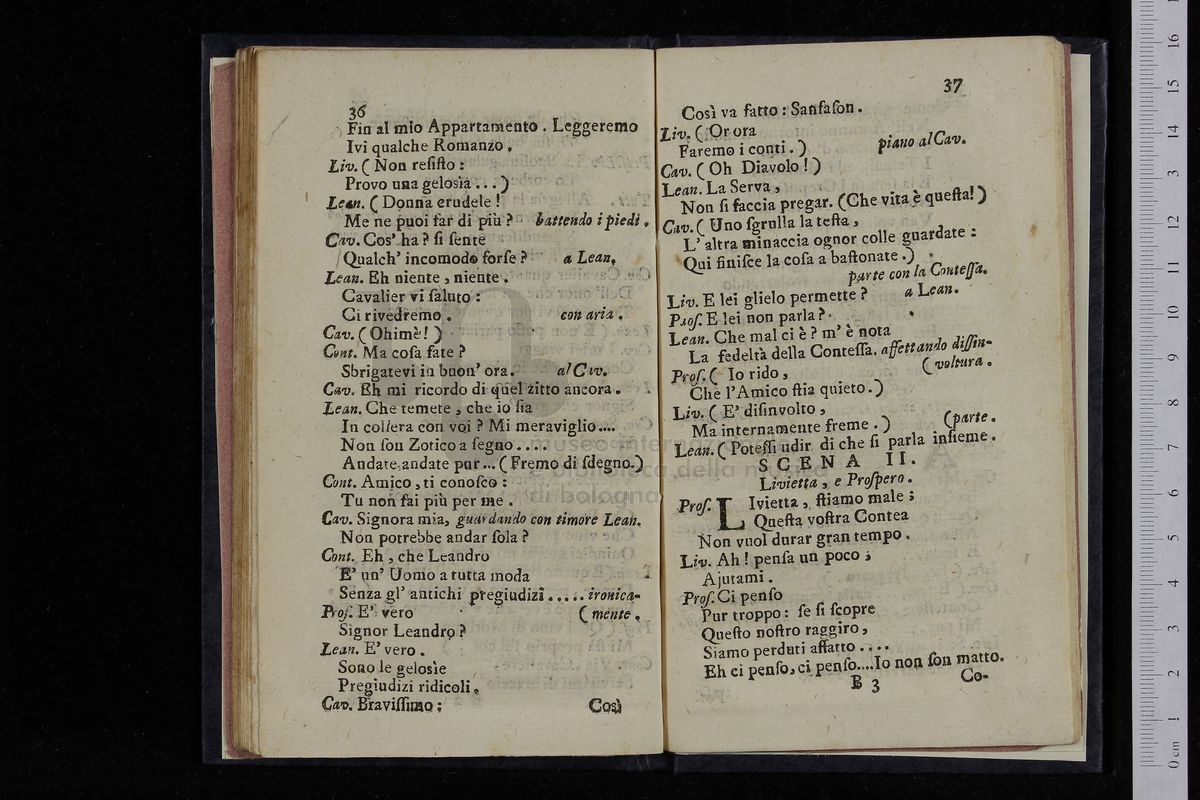 36
Fin al mio Appartamento . Leggeremo
Ivi qualche Romanzo .
Liv. ( Non reſiſto :
Provo una gelosìa . . . )
Lean. ( Donna crudele !
Me ne puoi far di più ? battendo i piedi .
Cav. Cos' ha ? ſi ſente
Qualch' incomodo forſe ? a Lean.
Lean. Eh niente , niente .
Cavalier vi ſaluto :
Ci rivedremo . con aria .
Cav. ( Ohimè ! )
Cont. Ma coſa fate ?
Sbrigatevi in buon' ora. al Cav.
Cav. Eh mi ricordo di quel zitto ancora .
Lean. Che temete , che io ſia
In collera con voi ? Mi meraviglio....
Non ſon Zotico a ſegno . . . .
Andate andate pur ... ( Fremo di ſdegno.)
Cont. Amico , ti conoſco :
Tu non fai più per me .
Cav. Signora mia, guardando con timore Lean.
Non potrebbe andar ſola ?
Cont. Eh , che Leandro
E' un' Uomo a tutta moda
Senza gl' antichi pregiudizi . . . . . ironica-
Proſ. E' vero ( mente .
Signor Leandro ?
Lean. E' vero .
Sono le gelosìe
Pregiudizi ridicoli .
Cav. Braviſſimo ; Così
37
Così va fatto : Sanſaſon .
Liv. ( Or ora
Faremo i conti . ) piano al Cav.
Cav. ( Oh Diavolo ! )
Lean. La Serva ,
Non ſi faccia pregar. (Che vita è queſta! )
Cav. ( Uno ſgrulla la teſta ,
L' altra minaccia ognor colle guardate :
Qui finiſce la coſa a baſtonate .)
parte con la Conteſſa.
Liv. E lei glielo permette ? a Lean.
Proſ. E lei non parla ?
Lean. Che mal ci è ? m' è nota
La fedeltà della Conteſſa. affettando diſſin-
Proſ. ( Io rido , ( voltura .
Che l'Amico ſtia quieto.)
Liv. ( E' diſinvolto ,
Ma internamente freme . ) (parte .
Lean. ( Poteſſi udir di che ſi parla inſieme .
SCENA II.
Livietta , e Proſpero .
Proſ. LIvietta , ſtiamo male ;
Queſta voſtra Contea
Non vuol durar gran tempo .
Liv. Ah ! penſa un poco ;
Ajutami .
Proſ. Ci penſo
Pur troppo : ſe ſi ſcopre
Queſto noſtro raggiro ,
Siamo perduti affatto . . . .
Eh ci penſo, ci penſo....Io non ſon matto.
B 3 Co-
museo internazionale
e biblioteca della musica
di bologna